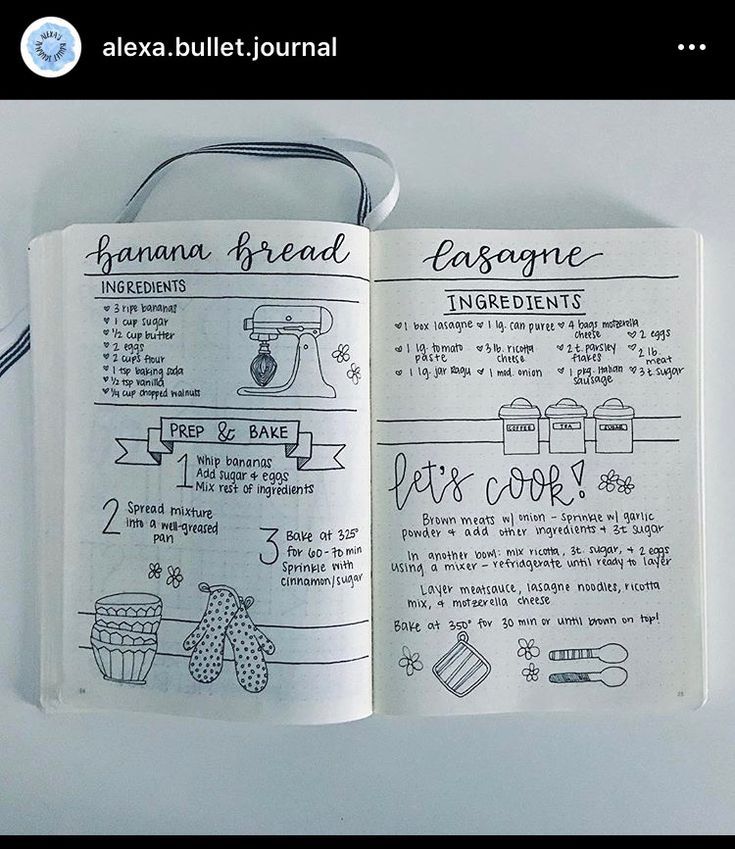 alexa.bullet.journal
banana bread
INGREDIENTS
3 ripe bananas
1 cup sugar
1/2 cup butter
2 eggs
2 cups flour
1 tsp baking soda
1/2 tsp vanilla
1/4 cup chopped walnuts
PREP & BAKE
1 Whip bananas
Add sugar & eggs
Mix rest of ingredients
2 Spread mixture
into a well-greased
pan
3 Bake at 325°
for 60-70 min
Sprinkle with
cinnamon/sugar
lasagne
INGREDIENTS
1 box lasagne
1 lg. can puree
4 bags motzerella
cheese
2 eggs
1 lg. tomato
paste
3 lb. ricotta
cheese
2 t. parsley
flakes
2 lb.
meat
1 lg. jar Ragu
1 med. onion
1 pkg. Italian
sausage
3 t. sugar
COFFEE
TEA
SUGAR
let's cook!
Brown meats w/ onion - Sprinkle w/ garlic
powder & add other ingredients + 3t sugar
In another bowl: mix ricotta, 3t. sugar, + 2 eggs
using a mixer - refridgerate until ready to layer
Layer meatsauce, lasagne noodles, ricotta
mix, & motzerella cheese
Bake at 350° for 30 min or until brown on top!